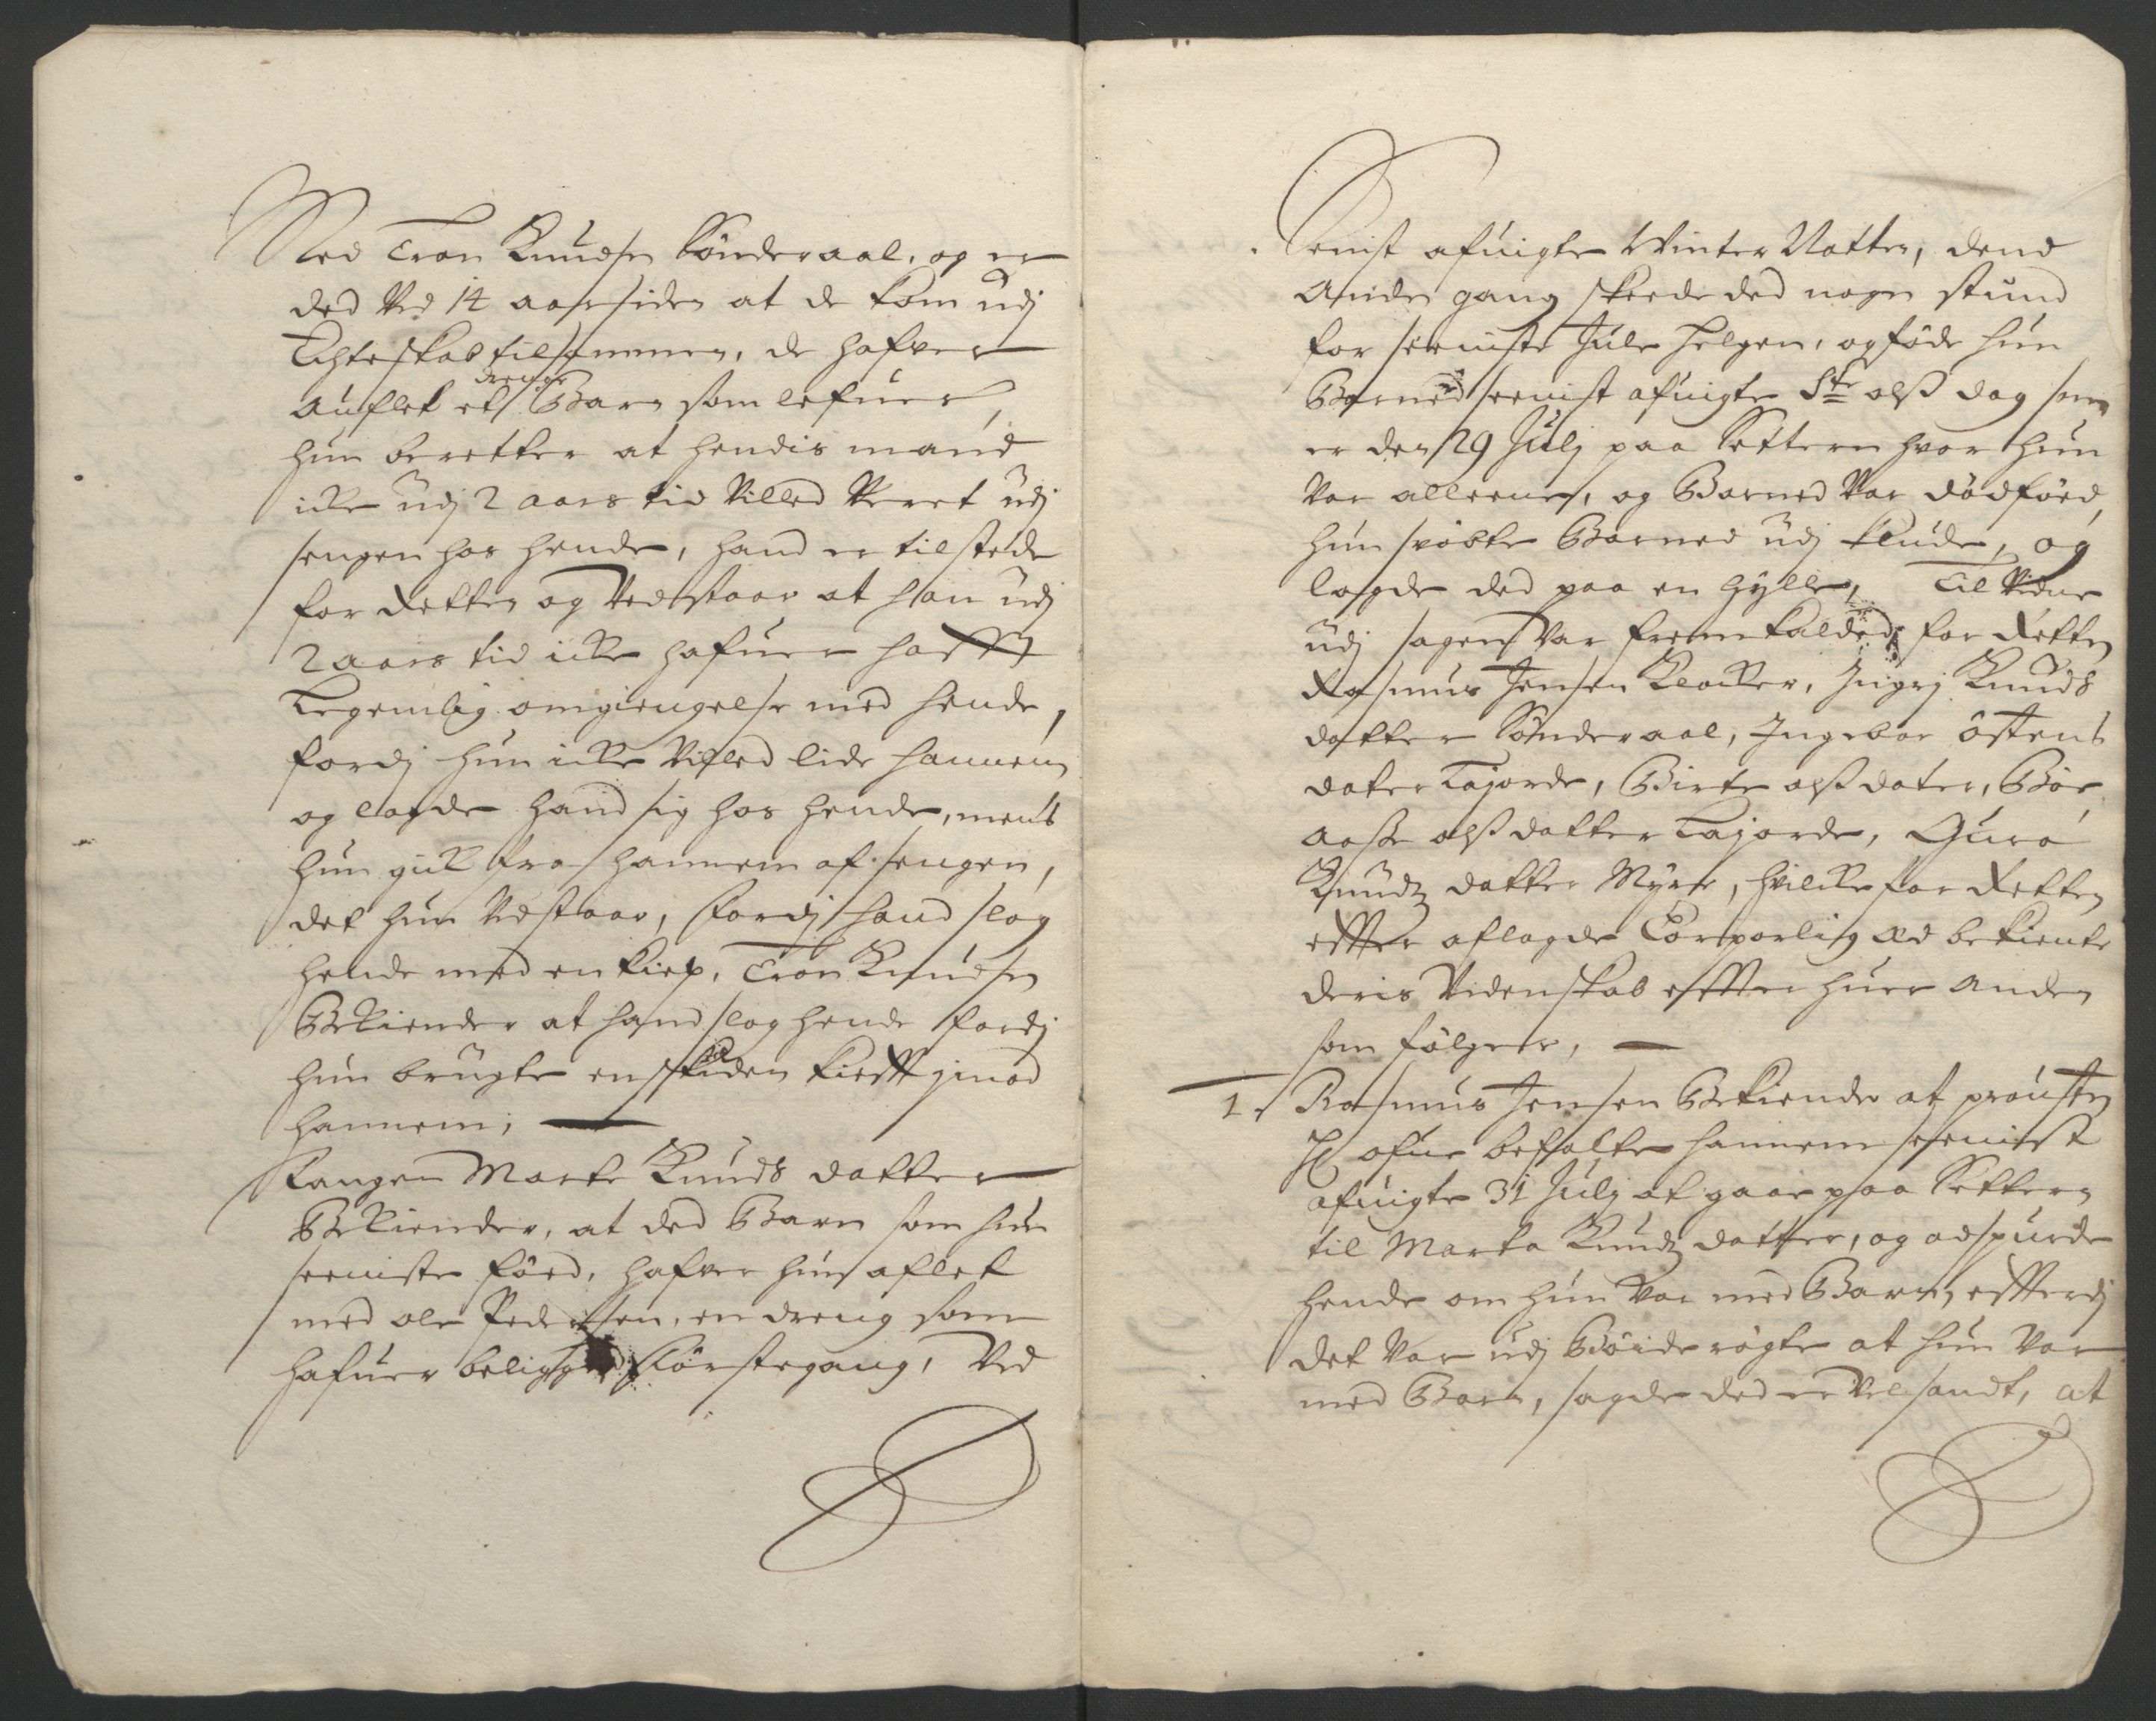 Med Tron Knudsen Sønderaal, og er
ded Ved 14 aar siden at de kom udj
Echteskab tilsammen, de hafver
auflet et drenge Barn som lefuer,
hun beretter at hendis mand
icke udj 2 aars tid Villed Veret udj
sengen hos hende, hand er tilstede
for Retten og Vedstaar at han udj
2 aars tid icke hafuer hafft
Legemlig omgiengelse med hende,
fordj hun icke Villed lide hannem
og lagde hand sig hos hende, mens
hun gick fra hannem af sengen,
det hun Vedstaar, fordj hand slog
hende med en kiep, Tron Knudsen
Bekiender at hand slog hende fordj
hun brugte en skiden kiefft imod
hannem;
Fangen Marte Knuds datter
Bekiender, at ded Barn som hun
seeniste fød, hafver hun aflet
med ole Pedersen, en dreng som
hafuer beligget første gang, Ved
Senist afuigte Winter Natter, dend
Anden gang skeede ded nogen stund
for seeniste Jule Helgen, og føde hun
Barned seenist afuigte Ste olss dag som
er den 29 Julj paa Settern hvor hun
Var alleene, og Barned Var dødføed,
hun svøbte Barned udj klude, og
lagde ded paa en Hylle, Til Vidne
udj sagen Var fremkalded for Retten
Rasmus Jensen Klocker, Ingrj Knuds
datter Sønderaal, Ingebor østens
dater Lajorde, Birte olss dater, Bøe
aasse olss datter Lajorde, Guro
Knudtz datter Myre, hvilcke for Retten
effter aflagde Corporlig æd bekiente
deris Videnskab effter huer anden
som følger,
1. Rasmus Jensen Bekiende at prousten
H ofue befalte hannem seenist
afuigte 31 Julj at gaae paa Settern
til Marta Knudtz datter, og adspurde
hende om hun Var med Barn, effterdj
det Var udj Bøide røgte at hun Var
med Barn, sagde ded er Vel sandt, at